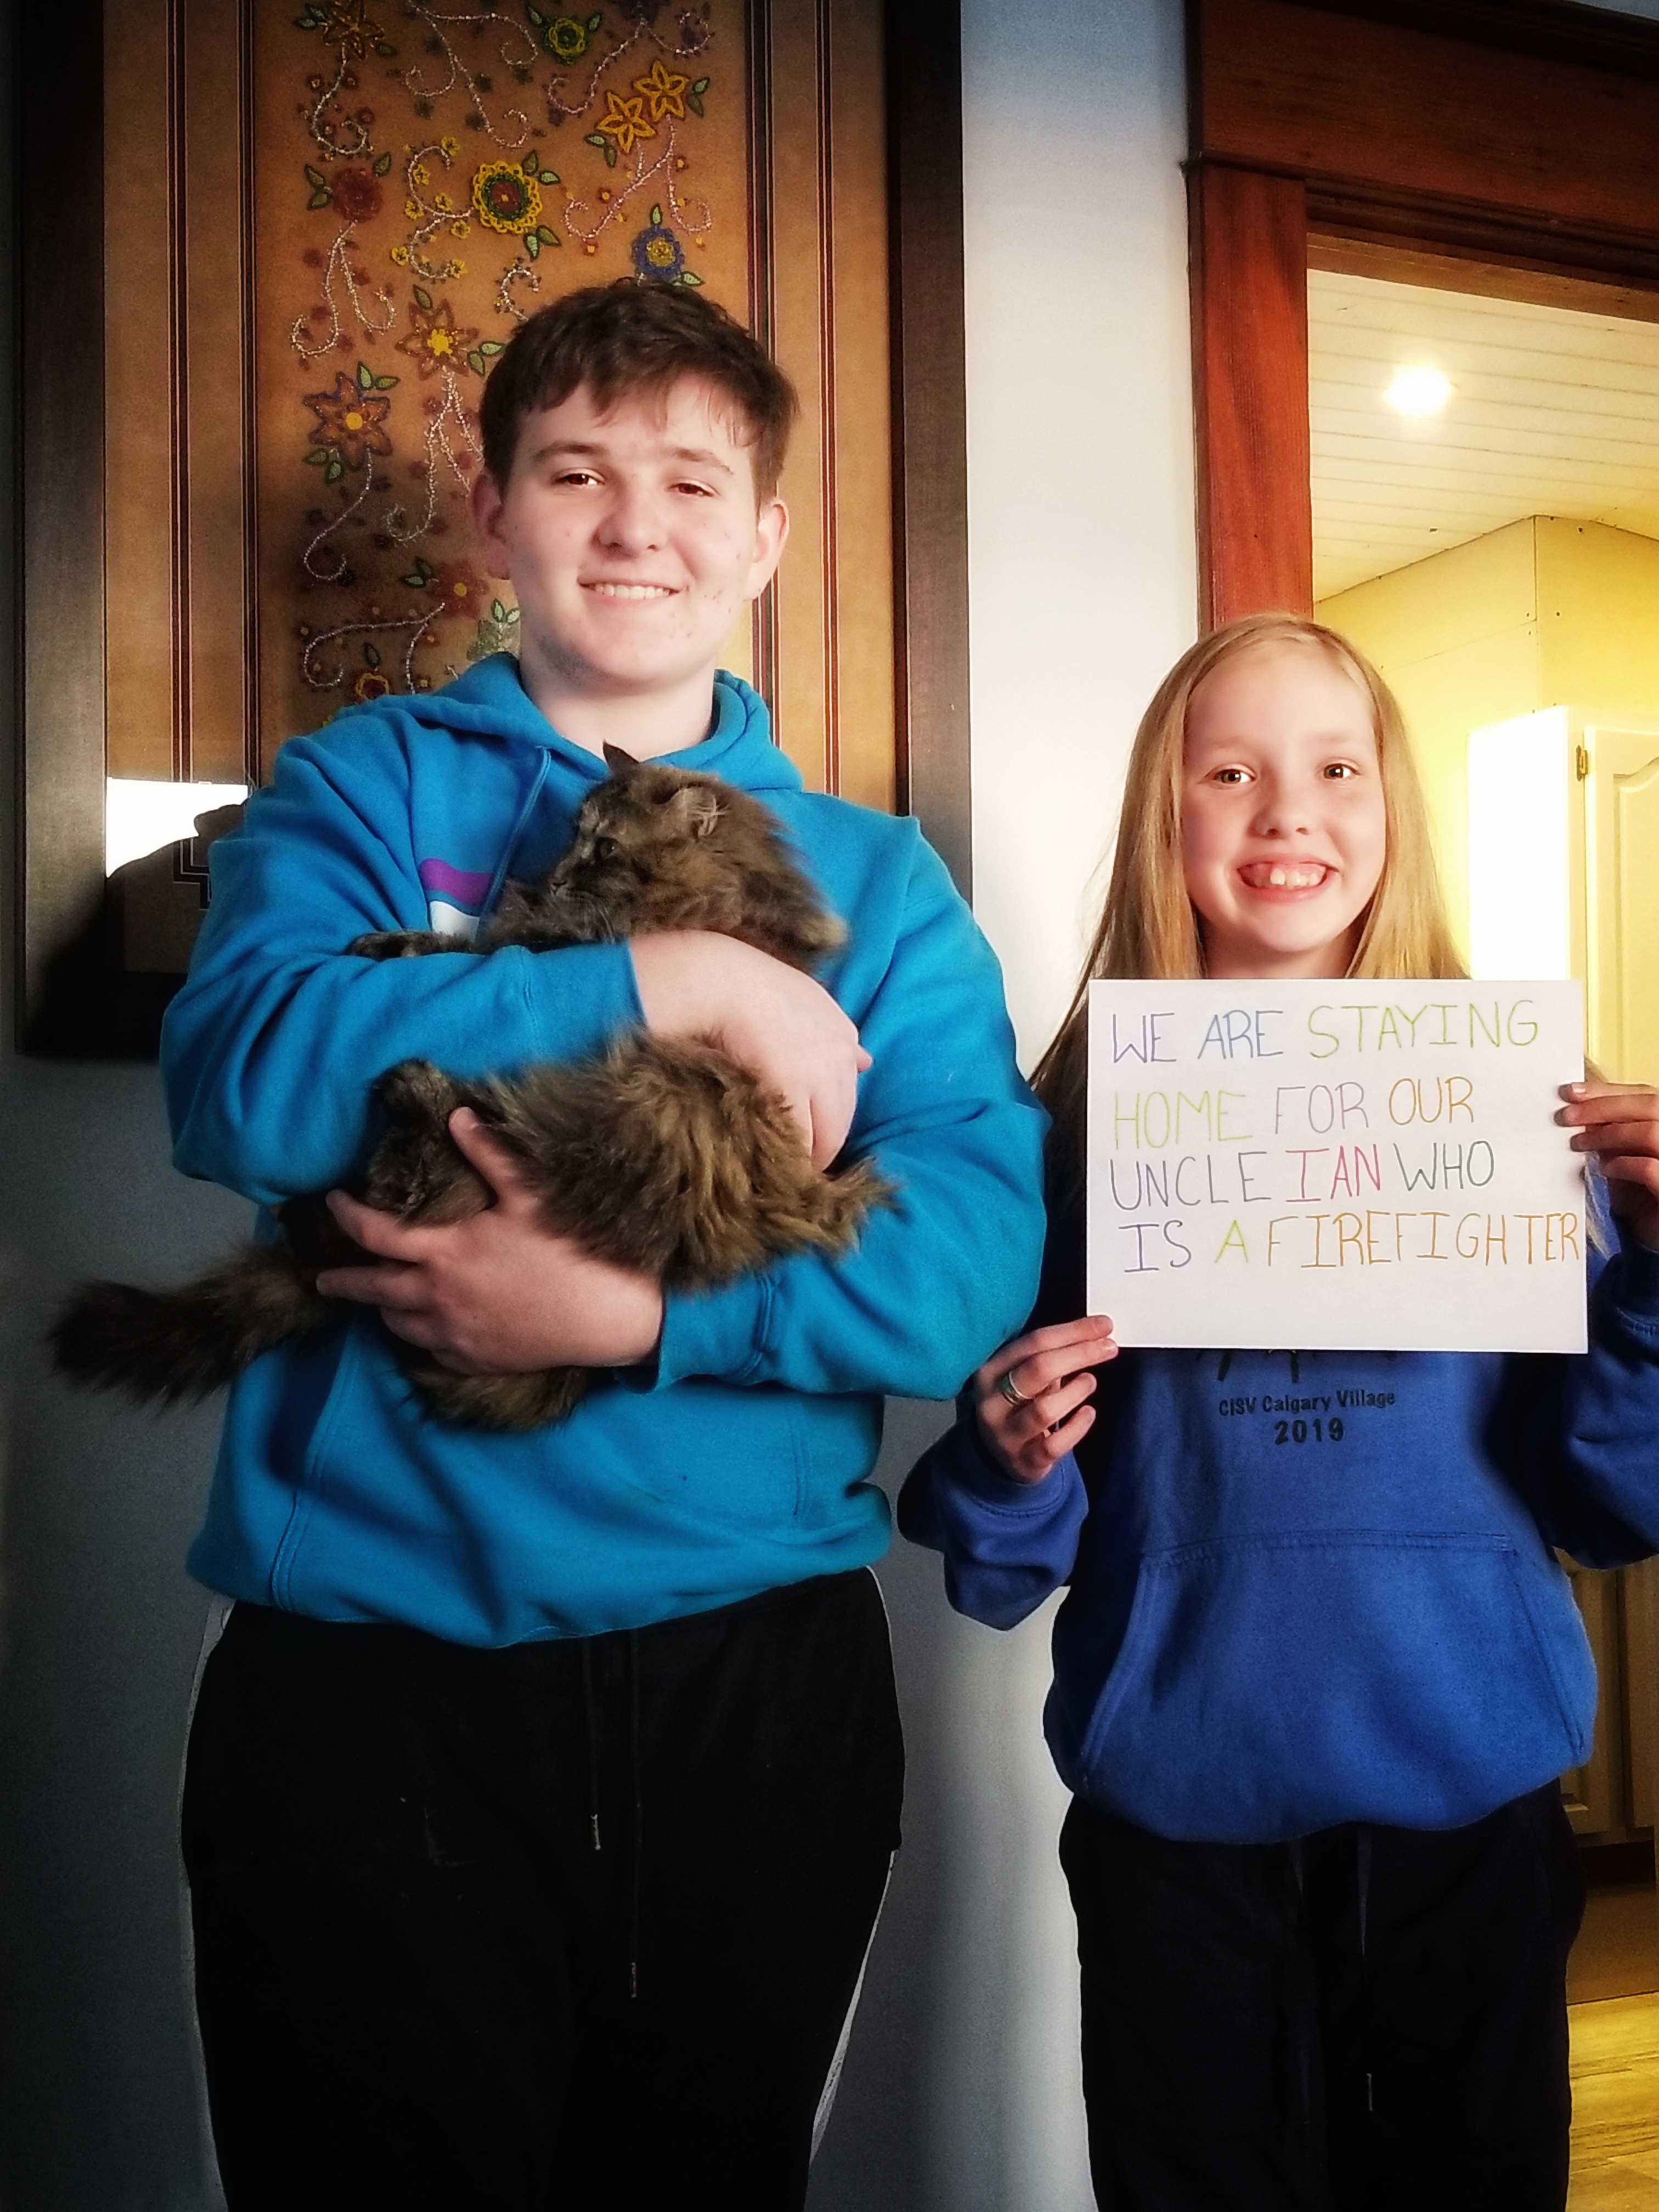 WE ARE STAYING
HOME FOR OUR
UNCLE IAN WHO
IS A FIREFIGHTER
CISV Calgary Village
2019